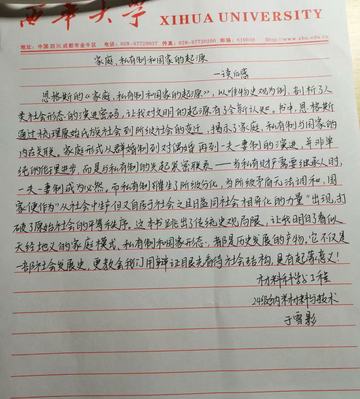 西华大学 XIHUA UNIVERSITY
地址:中国.四川.成都市金牛区 电话:028-87720037 传真:028-87720200 邮编:610039 Http://www.xhu.edu.cn
家庭、私有制和国家的起源
—读后感
恩格斯的《家庭、私有制和国家的起源》,以唯物史观为纲,剖析了人
类社会形态的演进密码,让我对文明的起源有了全新认知。书中,恩格斯
通过梳理原始氏族社会到阶级社会的变迁,揭示了家庭、私有制与国家的
内在关联。家庭形式从群婚制到对偶婚再到一夫一妻制的演进,并非单
纯的伦理进步,而是与私有制的兴起紧密联系——当私有财产需要继承人时,
一夫一妻制成为必然,而私有制催生了阶级分化,当阶级矛盾无法调和,国
家便作为“从社会中产生但又自居于社会之上且日益同社会相异化的力量”出现,打
破了原始社会的平等秩序。这本书跳出了传统史观局限,让我明白了看似
天经地义的家庭模式、私有制和国家形态,都是历史发展的产物,它不仅是
一部社会发展史,更教会我们用辩证目光看待社会结构,具有起蒙意义!
材料科学与工程
24级纳米材料与技术
于雪影